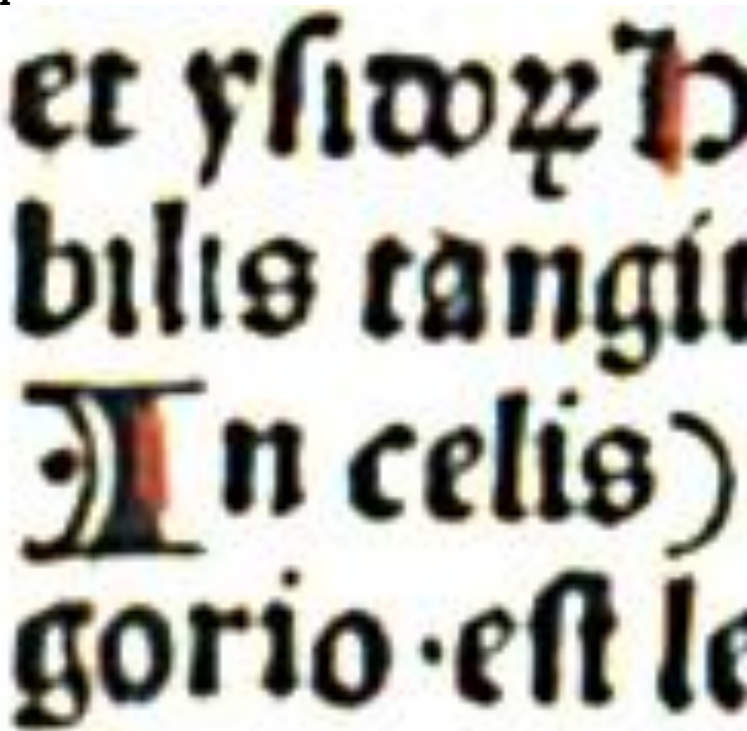 et yſidoꝝ
bilis tangi
In celis)
gorio·eſt le